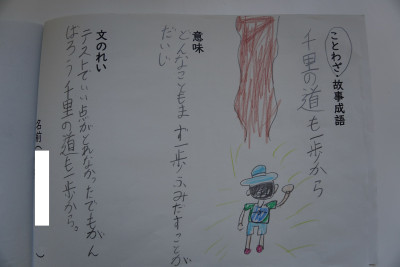 ことわざ・故事成語
千里の道も一歩から
意味
どんなこともまず一歩ふみだすことが
だいじ
文のれい
テストでいい点がとれなかったでもがん
ばろう千里の道も一歩から。
名前